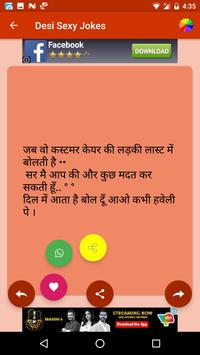 4:35
Desi Sexy Jokes
Facebook
DOWNLOAD
जब वो कस्टमर केयर की लड़की लास्ट में
बोलती है ••
सर मै आप की और कुछ मदत कर
सकती हूँ.. ° °
दिल में आता है बोल दूँ आओ कभी हवेली
पे ।
SEASON 4
STREAMING NOW
Download the App